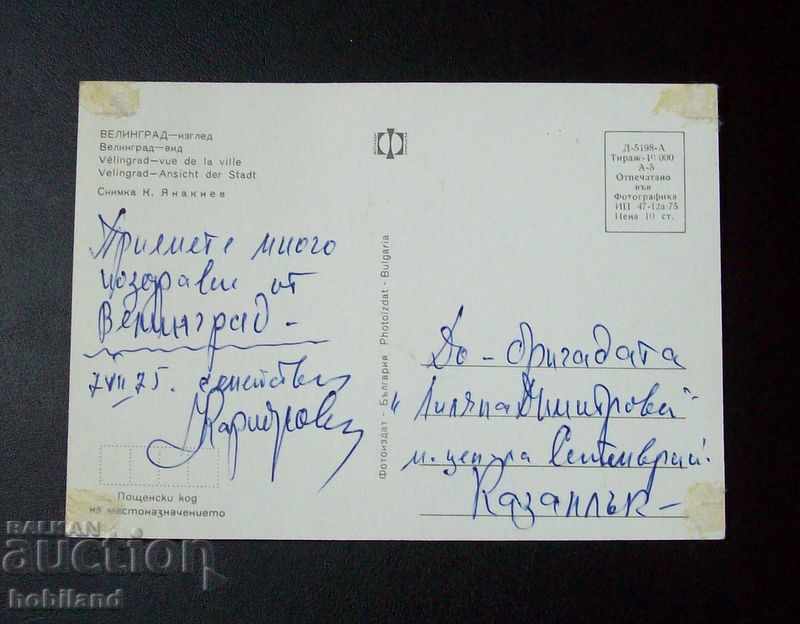 ВЕЛИНГРАД—изглед
Велинград—вид
Vélingrad—vue de la ville
Velingrad—Ansicht der Stadt
Снимка К. Янакиев
Приемете много
поздрави от
Велинград –
7 VII 75.
Пощенски код
на местоназначението
Фотоиздат - България Photoizdat - Bulgaria
Д-5198-А
Тираж-10 000
А-5
Отпечатано
във
Фотографика
ИП 47-12а-75
Цена 10 ст.
До – бригадата
"Лиляна Димитрова"
м. център Септемврий
Казанлък –
BALKAN
auction
hobiland